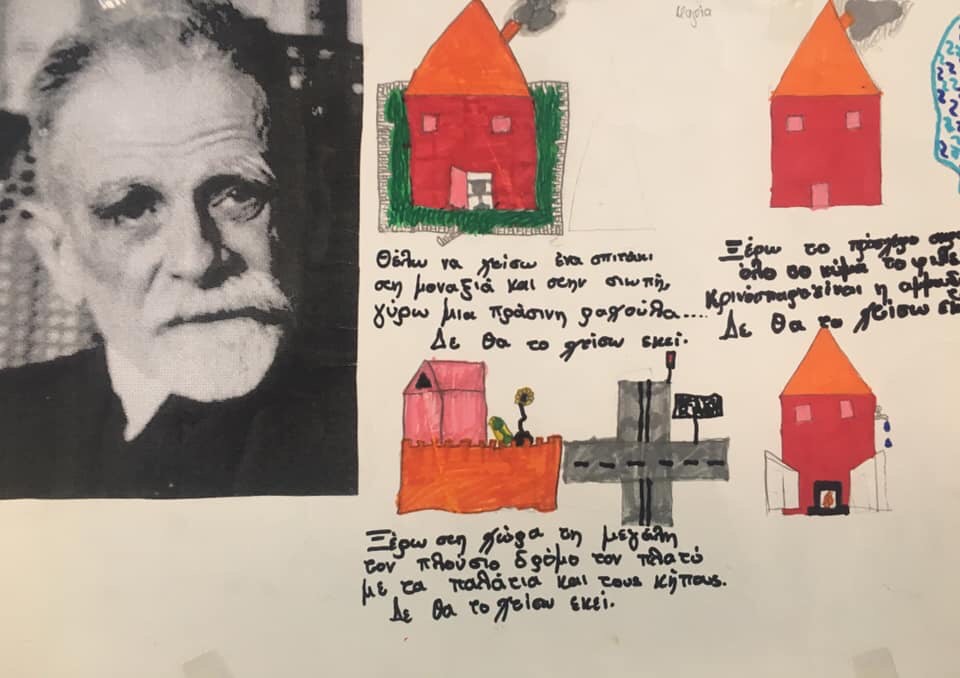 Μαρία
Θέλω να χτίσω ένα σπιτάκι
στη μοναξιά και στην σιωπή,
γύρω μια πράσινη ραχούλα....
Δε θα το χτίσω εκεί.
Ξέρω το
όλο το κύμα το
είναι η
Δε θα το χτίσω
Ξέρω στη χώρα τη μεγάλη
τον πλούσιο δρόμο τον πλατύ
με τα παλάτια και τους κήπους.
Δε θα το χτίσω εκεί.